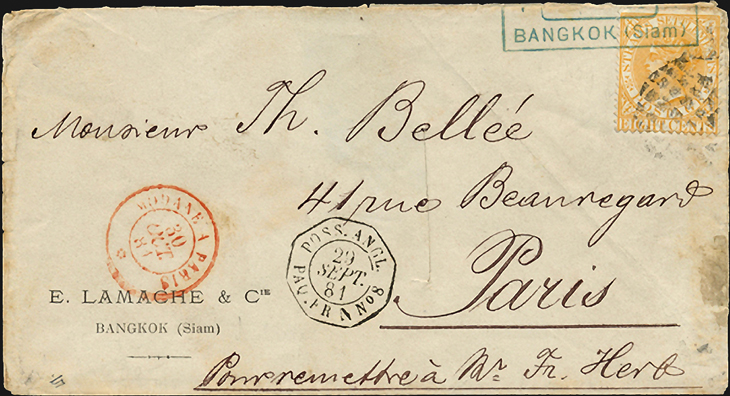 BANGKOK (Siam)
STRAITS SETTLEMENTS
EIGHT CENTS
Monsieur Th. Bellée
41 rue Beauregard
Paris
MODANE A PARIS
30 OCT 81
POSS. ANGL.
29
SEPT.
81
PAQ. FR N No 8
E. LAMACHE & Cie
BANGKOK (Siam)
Pour remettre à Mr Fr. Herb